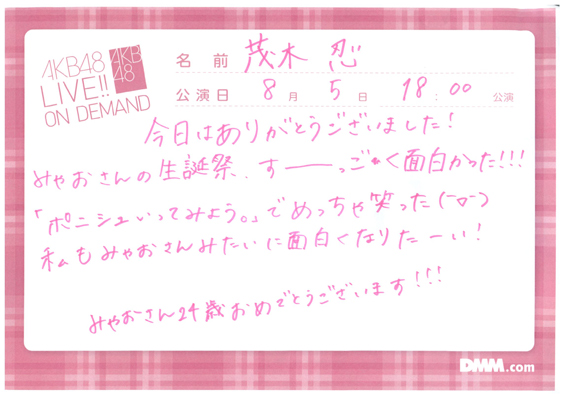 AKB48
LIVE!!
ON DEMAND
AKB
48
名前 茂木 忍
公演日 8月 5日 18:00 公演
今日はありがとうございました!
みゃおさんの生誕祭、すーーっごく面白かった!!!
「ポニシュいってみよう。」でめっちゃ笑った(ーοー)
私もみゃおさんみたいに面白くなりたーい!
みゃおさん24歳おめでとうございます!!!
DMM.com